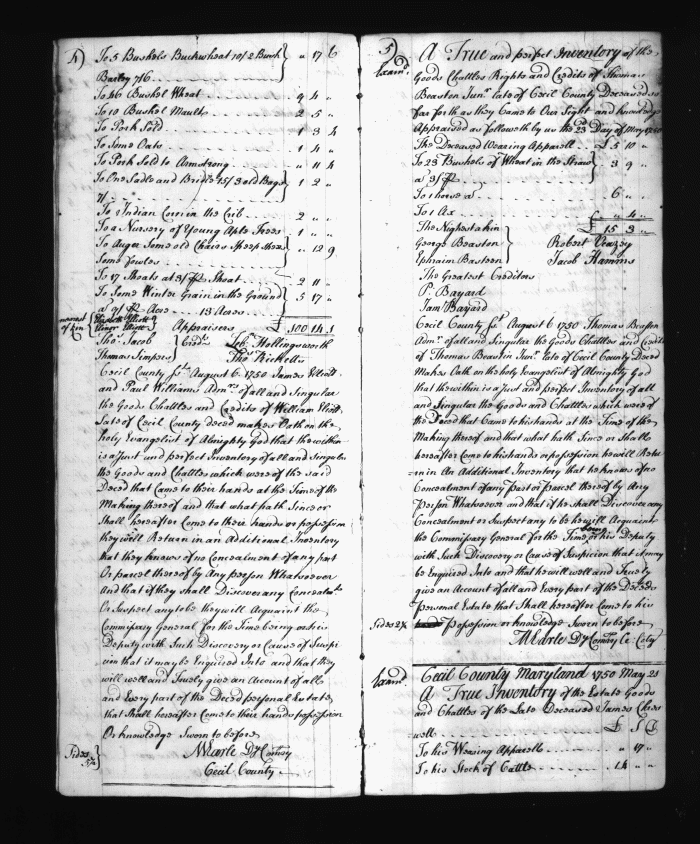 4)
To 5 Bushels Buckwheat 10/2 Bush } " 17 6
Barley 7/6
To 46 Bushel Wheat 9 4 "
To 10 Bushel Mault 2 5 "
To Pork Sold 1 3 4
To Some Oats 1 4 "
To Pork Sold to Armstrong " 11 4
To One Sadle and Bridle 15/ 3 old Bags } 1 2 "
7/
To Indian Corn in the Crib 2 " "
To a Nursery of Young Apts Trees 1 " "
To Auger Some old Chairs Sheep Shears } " 12 9
Some Fowles
To 17 Shoats at 3/ Pr Shoat 2 11 "
To Some Winter Grain in the Ground } 5 17 "
a 9/ Pr Acre 13 Acres
nearest of kin Appraisers £ 100 14 1
Thos. Jacob } Credrs. Zeb. Hollingsworth
Thomas Simpers Thos. Ricketts
Cecil County ss August 6. 1750 James Elliott
and Paul Williams Admrs. of all and Singular
the Goods Chattles and Credits of William Eliott
Late of Cecil County deced makes Oath on the
holy Evangelist of Almighty God that the within
is a Just and perfect Inventory of all and Singular
the Goods and Chattles which were of the said
Deced that Came to their hands at the Time of the
Making thereof and that what hath Since or
Shall hereafter Come to their hands or possession
they will Return in an Additional Inventory
that they knows of no Concealment of any part
Or parcel thereof by Any person Whatsoever
And that if they Shall Discover any Concealmt.
Or Suspect any to be they will Acquaint the
Commissary General for the Time being or his
Deputy with Such Discovery or Cause of Suspi
cion that it may be Enquired Into and that they
will well and Justly give an Account of all
and Every part of the Deced personal Estate
that Shall hereafter Come to their hands possession
Or knowledge Sworn to before
Sides 5¾ } M Earle Dy Comry
Cecil County
5)
Examd.
A True and perfect Inventory of the
Goods Chattles Rights and Credits of Thomas
Beasten Junr. late of Cecil County Deceased so
far forth as they Came to Our Sight and knowledge
Appraised as followeth by us the 23d Day of May 1750
The Deceased Wearing Apparell £ 5 10 "
To 23 Bushels of Wheat in the Straw } 3 9 "
a 3/ Pr
To 1 horse a 6 " "
To 1 Ax £ " 4 "
The Nighest akin £ 15 3 "
George Beasten } Robert Veazey
Ephraim Beasteen Jacob Hamms
The Greatest Creditors
P. Bayard
Jam Bayard
Cecil County ss August 6 1750 Thomas Beasten
Admr. of all and Singular the Goods Chattles and Credits
of Thomas Beastin Junr. late of Cecil County Deced
Makes Oath on the holy Evangelist of Almighty God
that the within is a Just and perfect Inventory of all
and Singular the Goods and Chattles which were of
the Deced that Came to his hands at the Time of the
Making thereof and that what hath Since or Shall
hereafter Come to his hands or possession he will Retu
rn in An Additional Inventory that he knows of no
Concealment of any Part or Parcel thereof by Any
Person Whatsoever and that if he Shall Discover any
Concealment or Suspect any to be he will Acquaint
the Commissary General for the Time being or his Deputy
with Such Discovery or Cause of Suspicion that it may
be Enquired Into and that he will well and Truely
give an Account of all and Every part of the Deceds
Personal Estate that Shall hereafter Come to his
Sides 2¾ possession or knowledge Sworn to before
M Earle Dy Comry Ce. Coty
Examd.
Cecil County Maryland 1750 May 23
A True Inventory of the Estate Goods
and Chattles of the Late Deceased James Chris
well £ S D
To his Wearing Apparell " 17 "
To his Stock of Cattle 14 " "